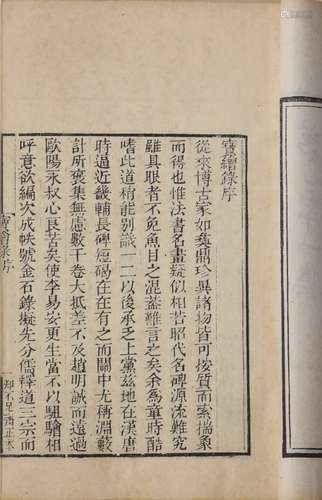 寶繪錄序
從來博古家如彝鼎珍異諸物皆可按質而索揣象
而得也惟法書名畫疑似相若昭代名碑源流難究
雖具眼者不免魚目之混盖難言之矣余爲童時酷
嗜此道稍能別識一二以後承乏上黨兹地在漢唐
時逼近畿輔長碑短碣在在有之而關中尤稱淵藪
計所裒集無慮數千卷大抵差不及趙明誠而遠過
歐陽永叔心良苦矣使李易安更生當不以駔相
呼意欲編次成帙號金石錄擬先分儒釋道三宗而
寶繪錄序
一
知不足齋正本